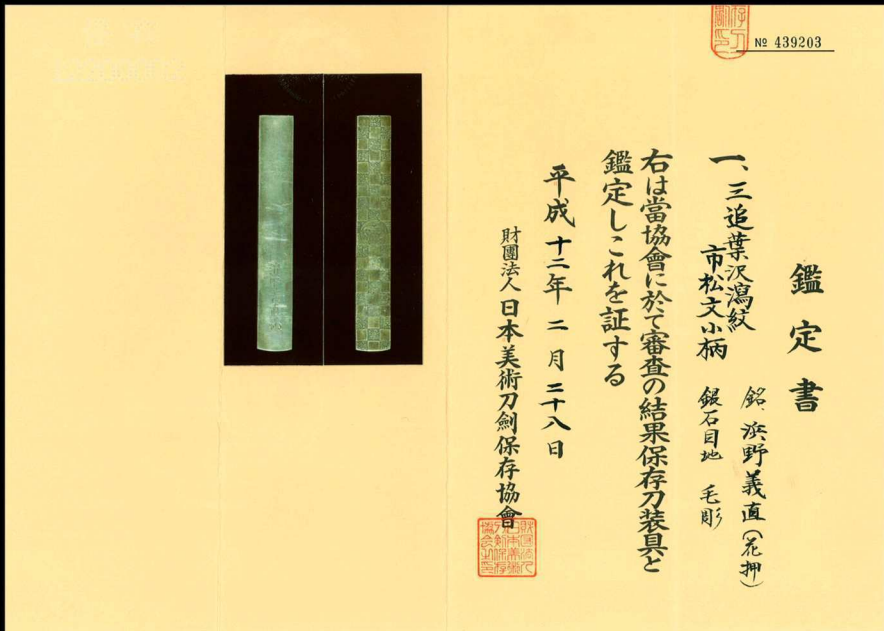 № 439203
鑑定書
一、三追葉沢瀉紋
市松文小柄
銘、浜野義直(花押)
銀石目地 毛彫
右は當協會に於て審査の結果保存刀装具と
鑑定しこれを証する
平成十二年二月二十八日
財團法人日本美術刀劍保存協會